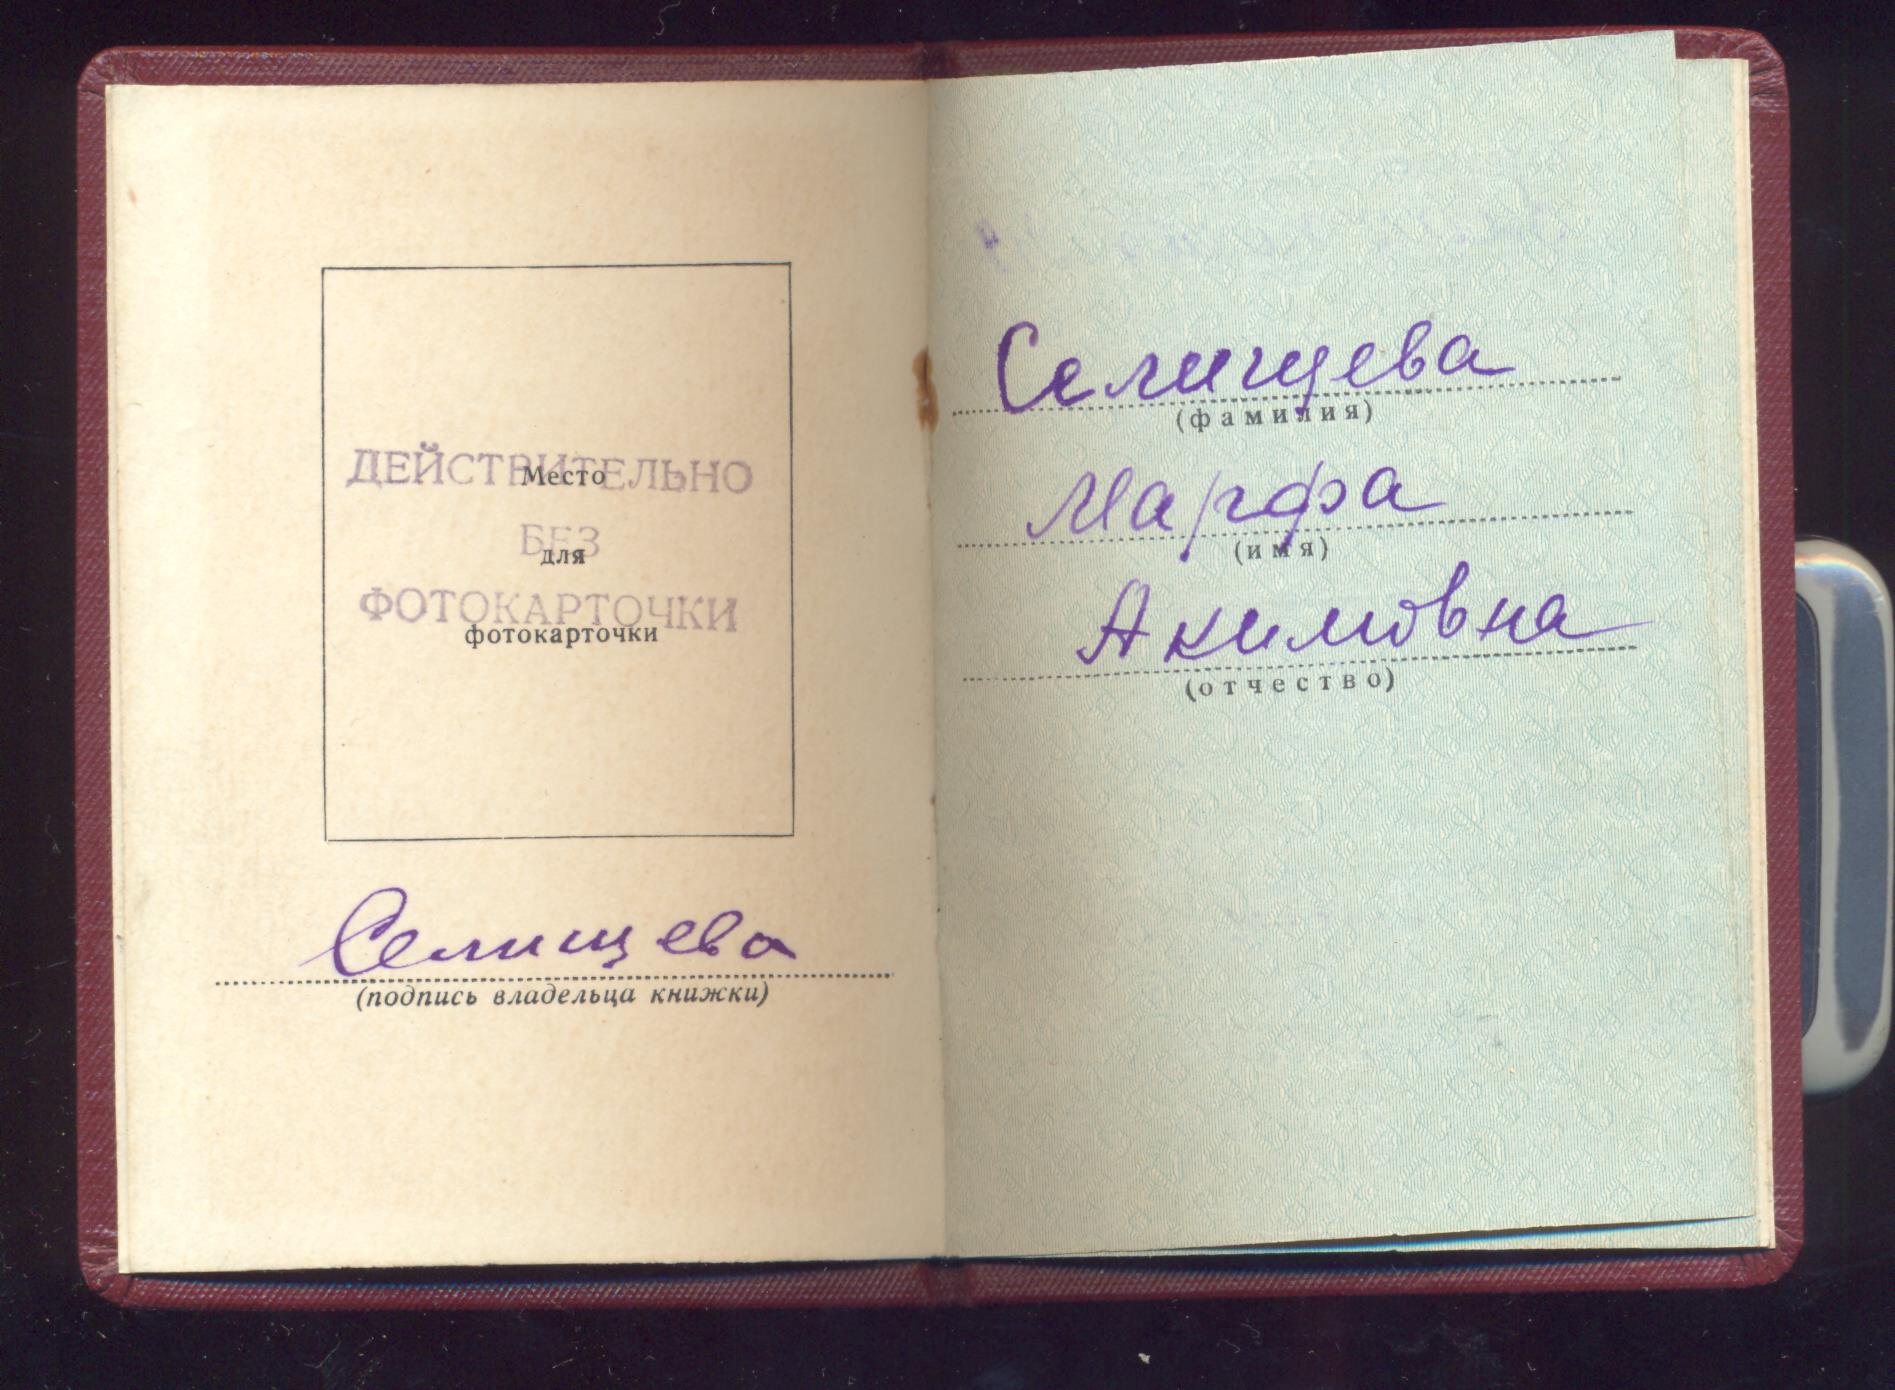 ДЕЙСТВИТЕЛЬНО
Место
БЕЗ
для
ФОТОКАРТОЧКИ
фотокарточки
Селищева
(подпись владельца книжки)
Селищева
(фамилия)
Марфа
(имя)
Акимовна
(отчество)